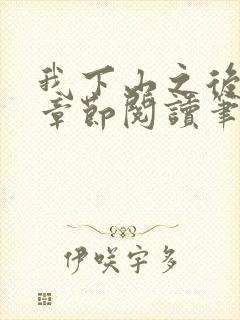 我下山之後
章節閱讀筆
伊咲宇多